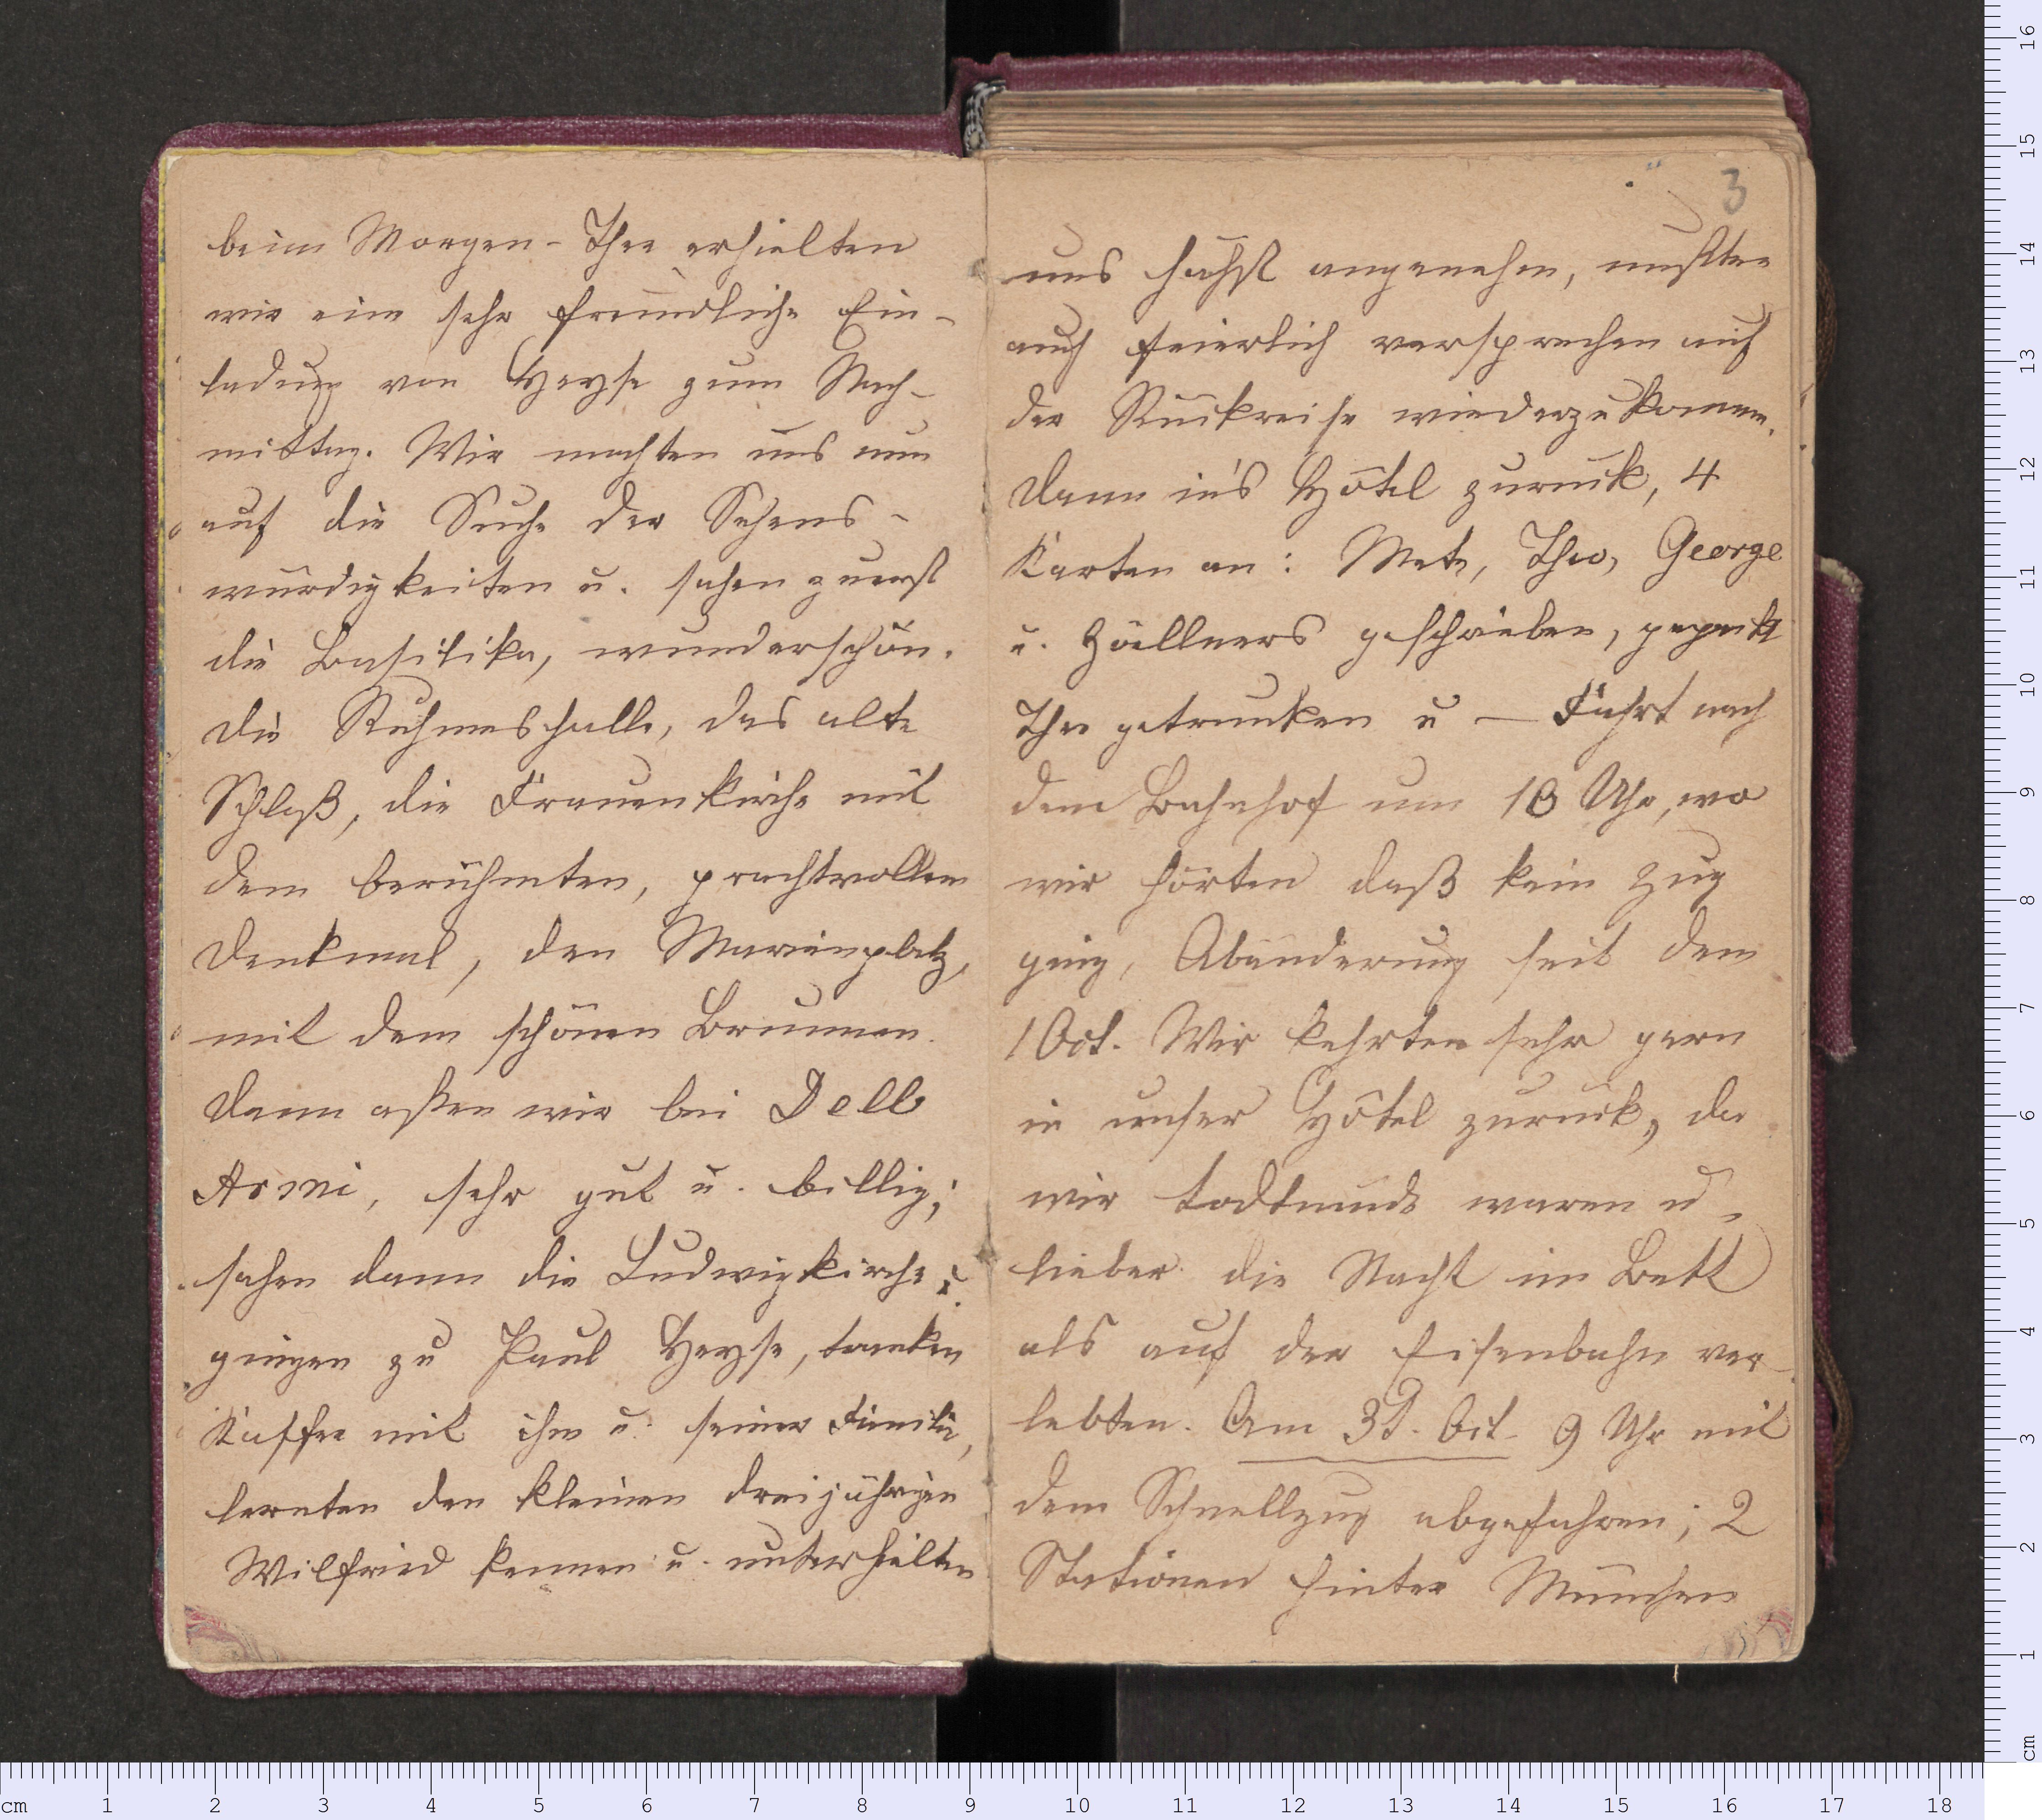 beim Morgen-Thee erhielten
wir eine sehr freundliche Ein-
ladung von Heyse zum Nach-
mittag. Wir machten uns nun
auf die Suche der Sehens-
würdigkeiten u. sahen zuerst
die Basilika, wunderschön.
die Ruhmeshalle, das alte
Schloß, die Frauenkirche mit
dem berühmten, prachtvollen
Denkmal, den Marienplatz,
mit dem schönen Brunnen.
Dann aßen wir bei Dell
Armi, sehr gut u. billig;
sahen dann die Ludwigkirche;
gingen zu Paul Heyse, tranken
Kaffee mit ihm u. seiner Familie,
lernten den kleinen dreijährigen
Wilfried kennen u. unterhielten
3
uns höchst angenehm, mußten
auch feierlich versprechen auf
der Rückreise wiederzukommen.
Dann in's Hôtel zurück, 4
Karten an: Mete, Theo, George
u. Zöllners geschrieben, gepackt
Thee getrunken u — Fahrt nach
dem Bahnhof um 10 Uhr, wo
wir hörten daß kein Zug
ging, Abänderung seit dem
1 Oct. Wir kehrten sehr gern
in unser Hôtel zurück, da
wir todtmüde waren u.
lieber die Nacht im Bett
als auf der Eisenbahn ver-
lebten. Am 3t. Oct. 9 Uhr mit
dem Schnellzug abgefahren; 2
Stationen hinter München